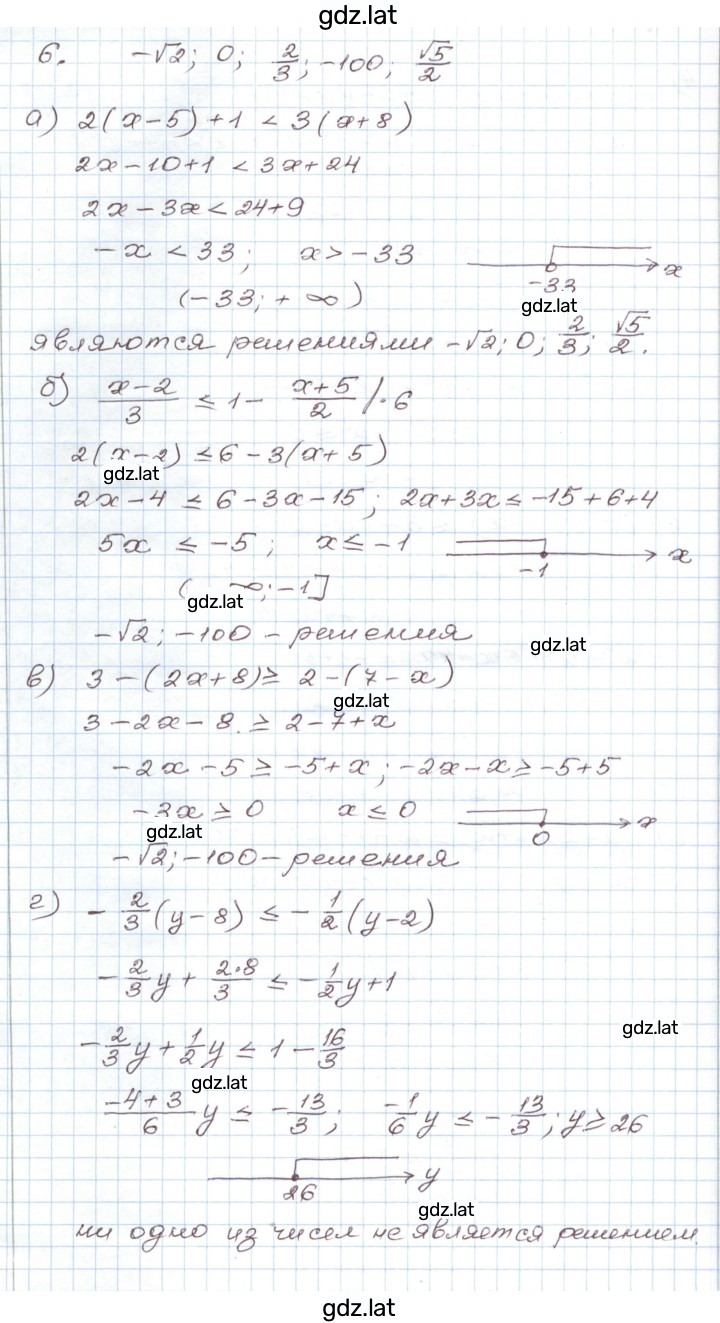 gdz.lat
6. -√2; 0; 2/3; -100; √5/2
а) 2(x-5)+1 < 3(x+8)
2x-10+1 < 3x+24
2x-3x < 24+9
-x < 33; x > -33
-33 x
(-33; +∞)
gdz.lat
являются решениями -√2; 0; 2/3; √5/2.
б) (x-2)/3 ≤ 1 - (x+5)/2 /·6
2(x-2) ≤ 6-3(x+5)
gdz.lat
2x-4 ≤ 6-3x-15; 2x+3x ≤ -15+6+4
5x ≤ -5; x ≤ -1
-1 x
(-∞; -1]
gdz.lat
-√2; -100 - решения
gdz.lat
в) 3-(2x+8) ≥ 2-(7-x)
gdz.lat
3-2x-8 ≥ 2-7+x
-2x-5 ≥ -5+x; -2x-x ≥ -5+5
-3x ≥ 0 x ≤ 0
0 x
gdz.lat
-√2; -100 - решения
г) -2/3(y-8) ≤ -1/2(y-2)
-2/3y + 2·8/3 ≤ -1/2y+1
gdz.lat
-2/3y + 1/2y ≤ 1 - 16/3
gdz.lat
(-4+3)/6 y ≤ -13/3; -1/6 y ≤ -13/3; y ≥ 26
26 y
gdz.lat
ни одно из чисел не является решением.
gdz.lat